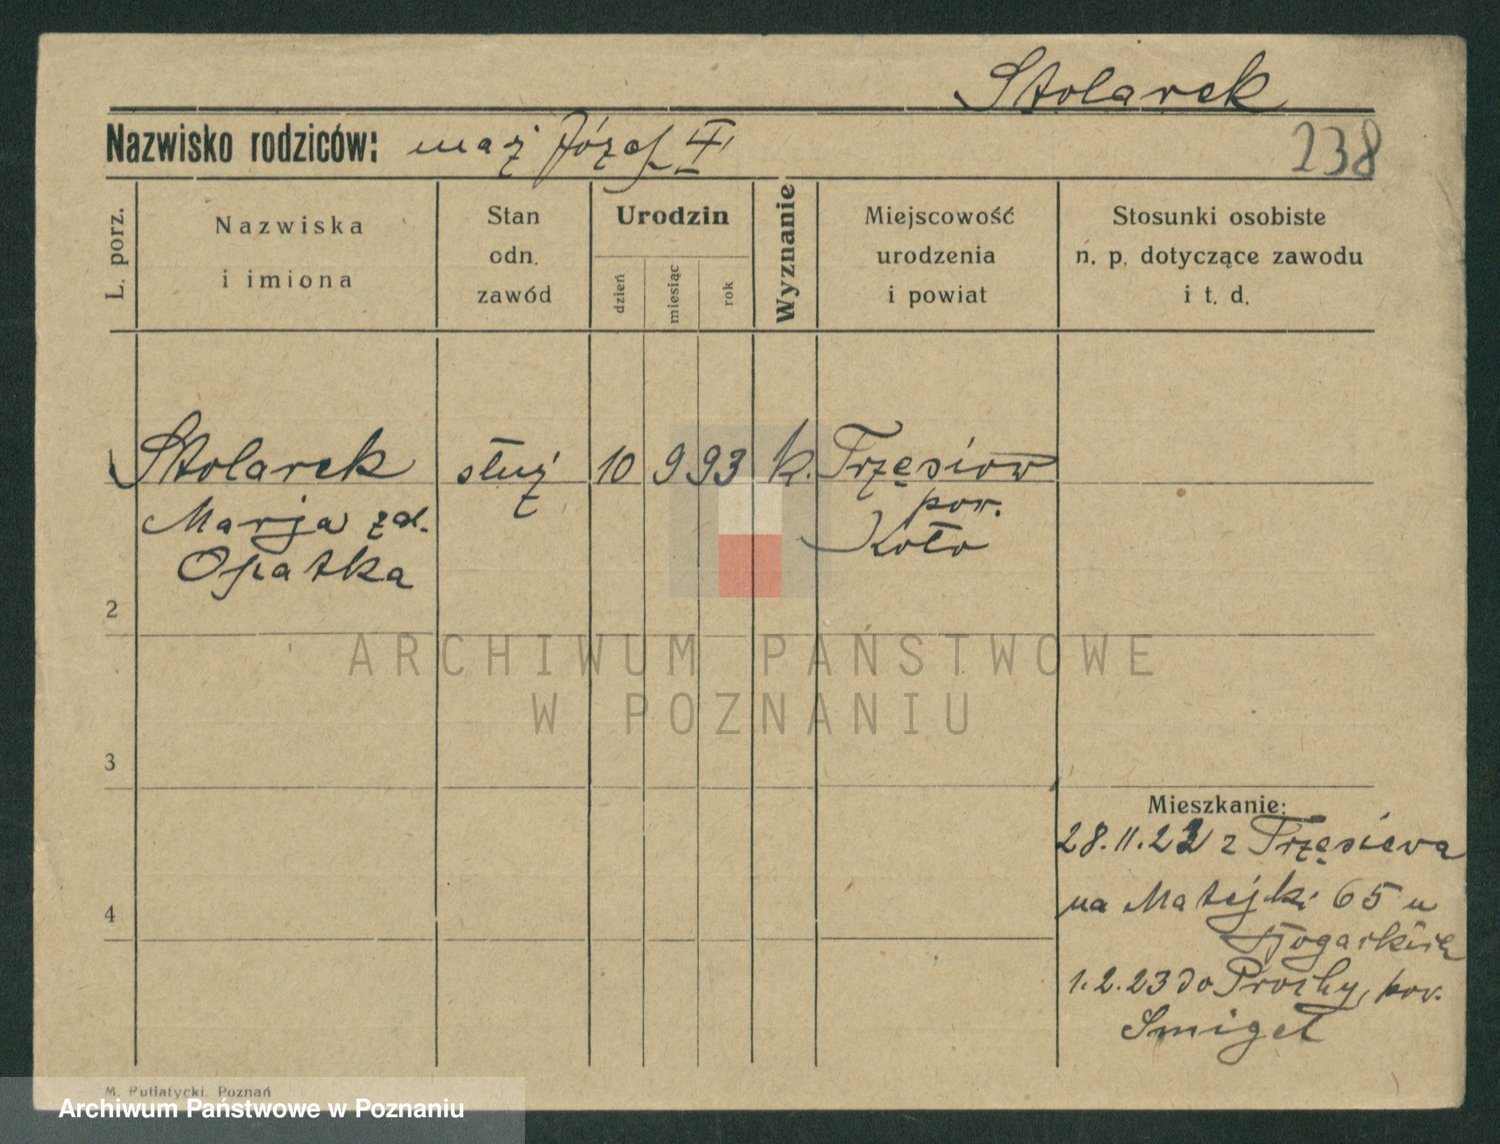 Stolarek
Nazwisko rodziców: mąż Józef II
238
L. porz.
Nazwiska
i imiona
Stan
odn.
zawód
Urodzin
dzień
miesiąc
rok
Wyznanie
Miejscowość
urodzenia
i powiat
Stosunki osobiste
n. p. dotyczące zawodu
i t. d.
1 Stolarek służ 10 9 93 k. Trzęsiew
Marja zd. pow.
Opatka Koło
2
ARCHIWUM PAŃSTWOWE
W POZNANIU
3
Mieszkanie:
28.11.22 z Trzęsiewa
na Matejki 65 u
4
1.2.23 do Prochy, pow.
Śmigel
M. Putiatycki, Poznań
Archiwum Państwowe w Poznaniu